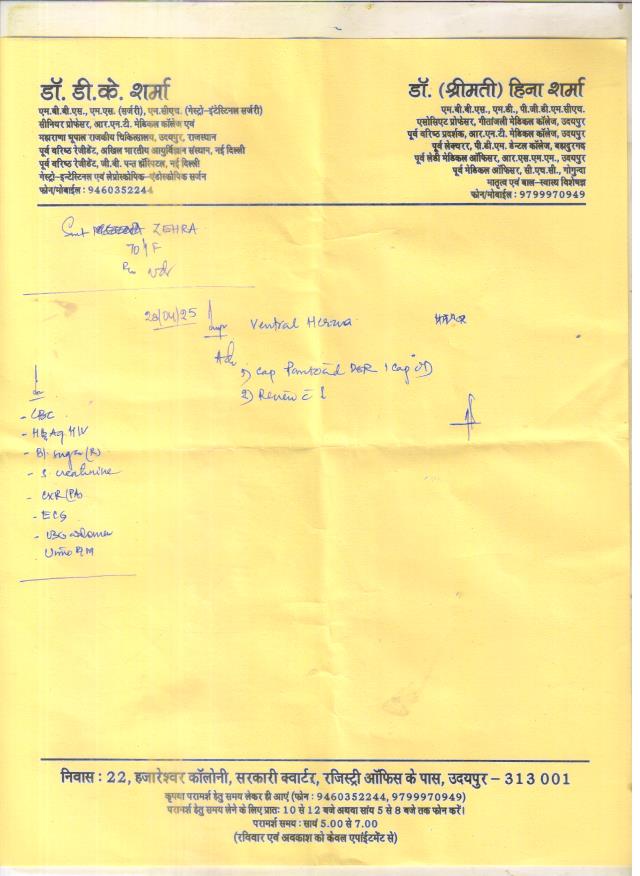 डॉ. डी.के. शर्मा
एम.बी.बी.एस., एम.एस. (सर्जरी), एम.सीएच. (गेस्ट्रो-इंटेस्टिनल सर्जरी)
सीनियर प्रोफेसर, आर.एन.टी. मेडिकल कॉलेज एवं
महाराणा भूपाल राजकीय चिकित्सालय, उदयपुर, राजस्थान
पूर्व वरिष्ठ रेजीडेंट, अखिल भारतीय आयुर्विज्ञान संस्थान, नई दिल्ली
पूर्व वरिष्ठ रेजीडेंट, जी.बी. पन्त हॉस्पिटल, नई दिल्ली
गेस्ट्रो-इन्टेस्टिनल एवं लेप्रोस्कोपिक-एंडोस्कोपिक सर्जन
फोन/मोबाईल : 9460352244
डॉ. (श्रीमती) हिना शर्मा
एम.बी.बी.एस., एम.डी., पी.जी.डी.एम.सीएच.
एसोसिएट प्रोफेसर, गीतांजली मेडिकल कॉलेज, उदयपुर
पूर्व वरिष्ठ प्रदर्शक, आर.एन.टी. मेडिकल कॉलेज, उदयपुर
पूर्व लेक्चरर, पी.डी.एम. डेन्टल कॉलेज, बहादुरगढ़
पूर्व लेडी मेडिकल ऑफिसर, आर.एस.एम.एम., उदयपुर
पूर्व मेडिकल ऑफिसर, सी.एच.सी., गोगुन्दा
मातृत्व एवं बाल-स्वास्थ्य विशेषज्ञ
फोन/मोबाईल : 9799970949
Smt ZEHRA
70/F
Ventral Hernia
Adv
1) Cap DSR 1 Cap OD
2) Review c̄
- CBC
- HBsAg HIV
- Bl. sugar (R)
- S. creatinine
- CXR (PA)
- ECG
- USG abdomen
Urine RM
निवास : 22, हजारेश्वर कॉलोनी, सरकारी क्वार्टर, रजिस्ट्री ऑफिस के पास, उदयपुर – 313 001
कृपया परामर्श हेतु समय लेकर ही आएं (फोन : 9460352244, 9799970949)
परामर्श हेतु समय लेने के लिए प्रातः 10 से 12 बजे अथवा सांय 5 से 8 बजे तक फोन करें।
परामर्श समय : सायं 5.00 से 7.00
(रविवार एवं अवकाश को केवल एपाईंटमेंट से)